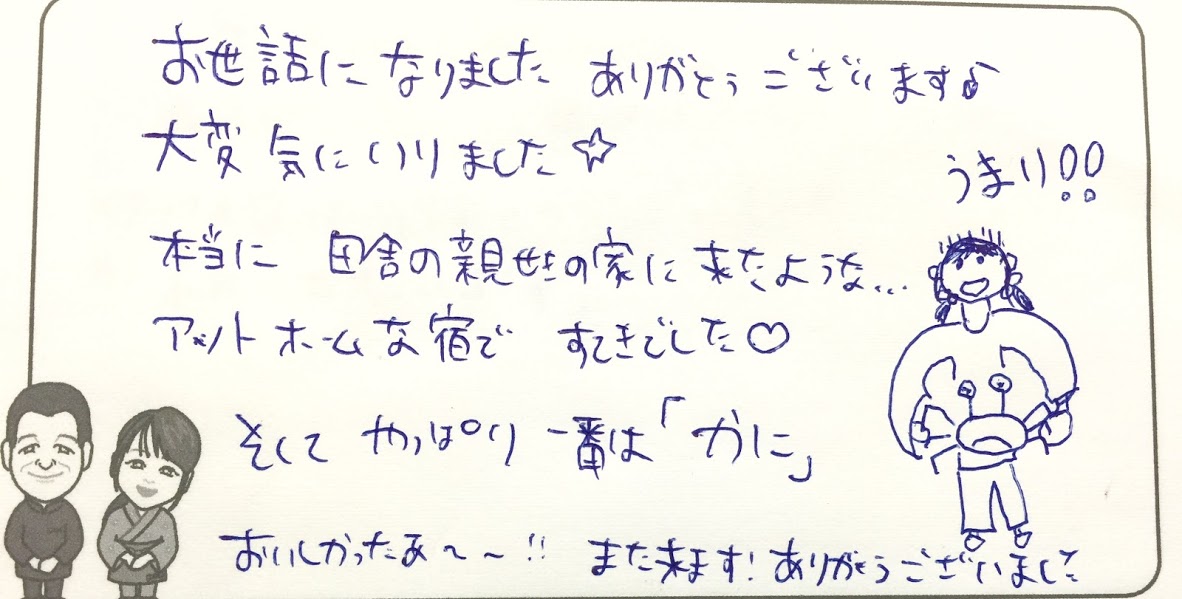 お世話になりました ありがとうございます♪
大変気にいりました☆
うまい!!
本当に 田舎の親せきの家に来たような...
アットホームな宿で すてきでした♡
そして やっぱり 一番は「かに」
おいしかったあ〜〜!! また来ます!ありがとうございました